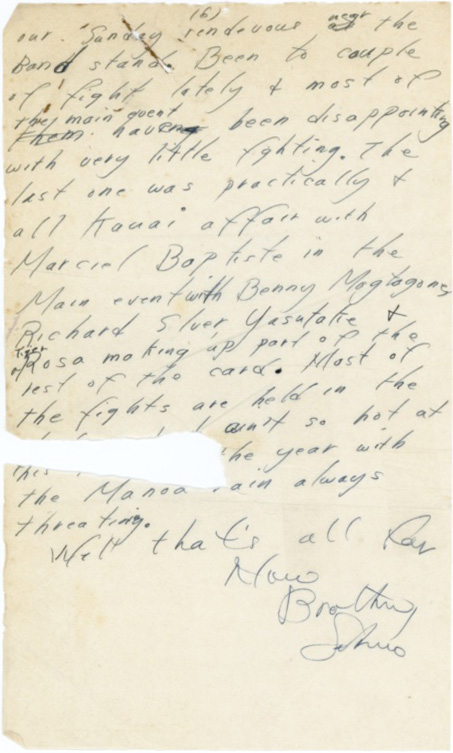 (6)
our Sunday rendevous near the
Band stand. Been to couple
of fight lately & most of
the main event
have been disappointing
with very little fighting. The
last one was practically &
all Kauai affair with
Marciel Baptiste in the
Main event with Benny
Richard Slver Yasutake &
Tiger
Rosa making up part of the
rest of the card. Most of
the fights are held in the
ain't so hot at
this the year with
the Manoa rain always
threating.
Well that's all for
Now
Brother